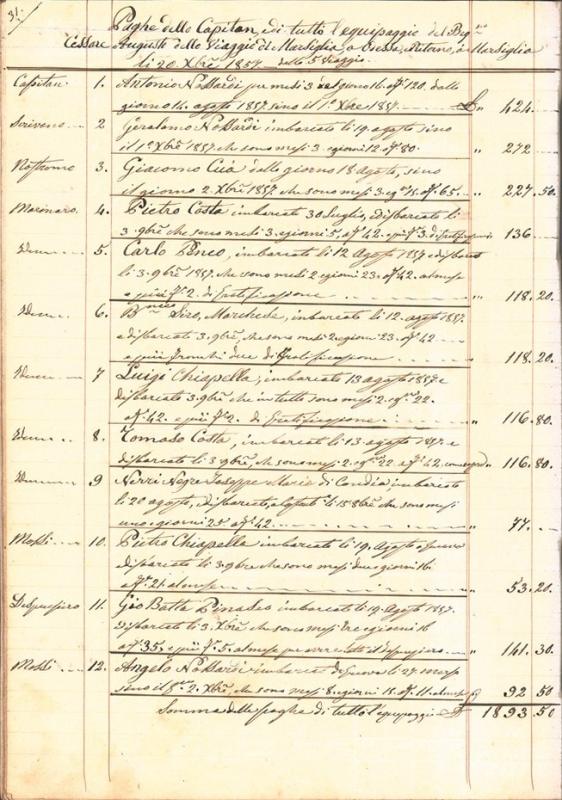 31.
Paghe dello Capitan, e di tutto l'equipaggio del Big.no
Cessare Augusto dello Viaggio di Marsiglia, a Odessa, Ritorno, a Marsiglia
li 20 Xbre 1857 dello 5 Viaggio.
Capitan 1. Antonio Nattardi per mesi 3 e giorni 16 a fr. 120, dallo
giorno 14 agosto 1857 sino il 1° Xbre 1857. £ 424
Scrivano 2 Gerolamo Nattardi imbarcato li 19 agosto sino
il 1° Xbre 1857 che sono mesi 3 e giorni 12 a f. 80. " 272
Nostromo 3. Giacomo Cuà dallo giorno 18 agosto, sino
il giorno 2 Xbre 1857 che sono mesi 3 e gni 15 a f. 65. " 227.50
Marinaro 4. Pietro Costa imbarcato 30 Luglio, e disbarcato li
3 9bre che sono mesi 3 e giorni 5, a f. 42. e più f. 3. di gratificazione 136
Idem 5. Carlo Penco, imbarcato li 12 Agosto 1857 e disbarcato
li 3. 9bre 1857 che sono mesi 2 e giorni 23. a f. 42. al mese
e più f. 2. di Gratificazione " 118.20
Idem 6. Siro, Marchese, imbarcato li 12. agosto 1857.
e disbarcato 3. 9bre, che sono mesi 2 e giorni 23. a f. 42
e più franchi due di Gratificazione " 118.20
Idem 7 Luigi Chiapella, imbarcato 13 agosto 1857 e
disbarcato 3. 9bre che in tutto sono mesi 2. e gni 22.
a f. 42. e più f. 2. di Gratificazione " 116.80
Idem 8. Tomaso Costa, imbarcato li 13. agosto 1857. e
disbarcato li 3. 9bre, che sono mesi 2. e gni 22 a f. 42, " 116.80
Idem 9 Nerri Negro Giuseppe di Candia imbarcato
li 20 agosto, disbarcato, li 15 8bre che sono mesi
uno e giorni 25 a f. 42 " 77.
Mossi 10. Pietro Chiapella imbarcato li 19. Agosto
disbarcato li 3. 9bre che sono mesi due e giorni 16
a f. 21. al mese " 53.20
11. Gio Batta Pinasco imbarcato li 19. Agosto 1857.
Disbarcato li 3. Xbre che sono mesi tre e giorni 16
a f. 35. e più f. 5. al mese per " 141.30
Mossi 12. Angelo Nattardi imbarcato li 27
sino il 2. Xbre, che sono mesi 8. e giorni 15. a f. 11. al mese 92 50
Somma delle paghe di tutto l'equipaggio £ 1893.50